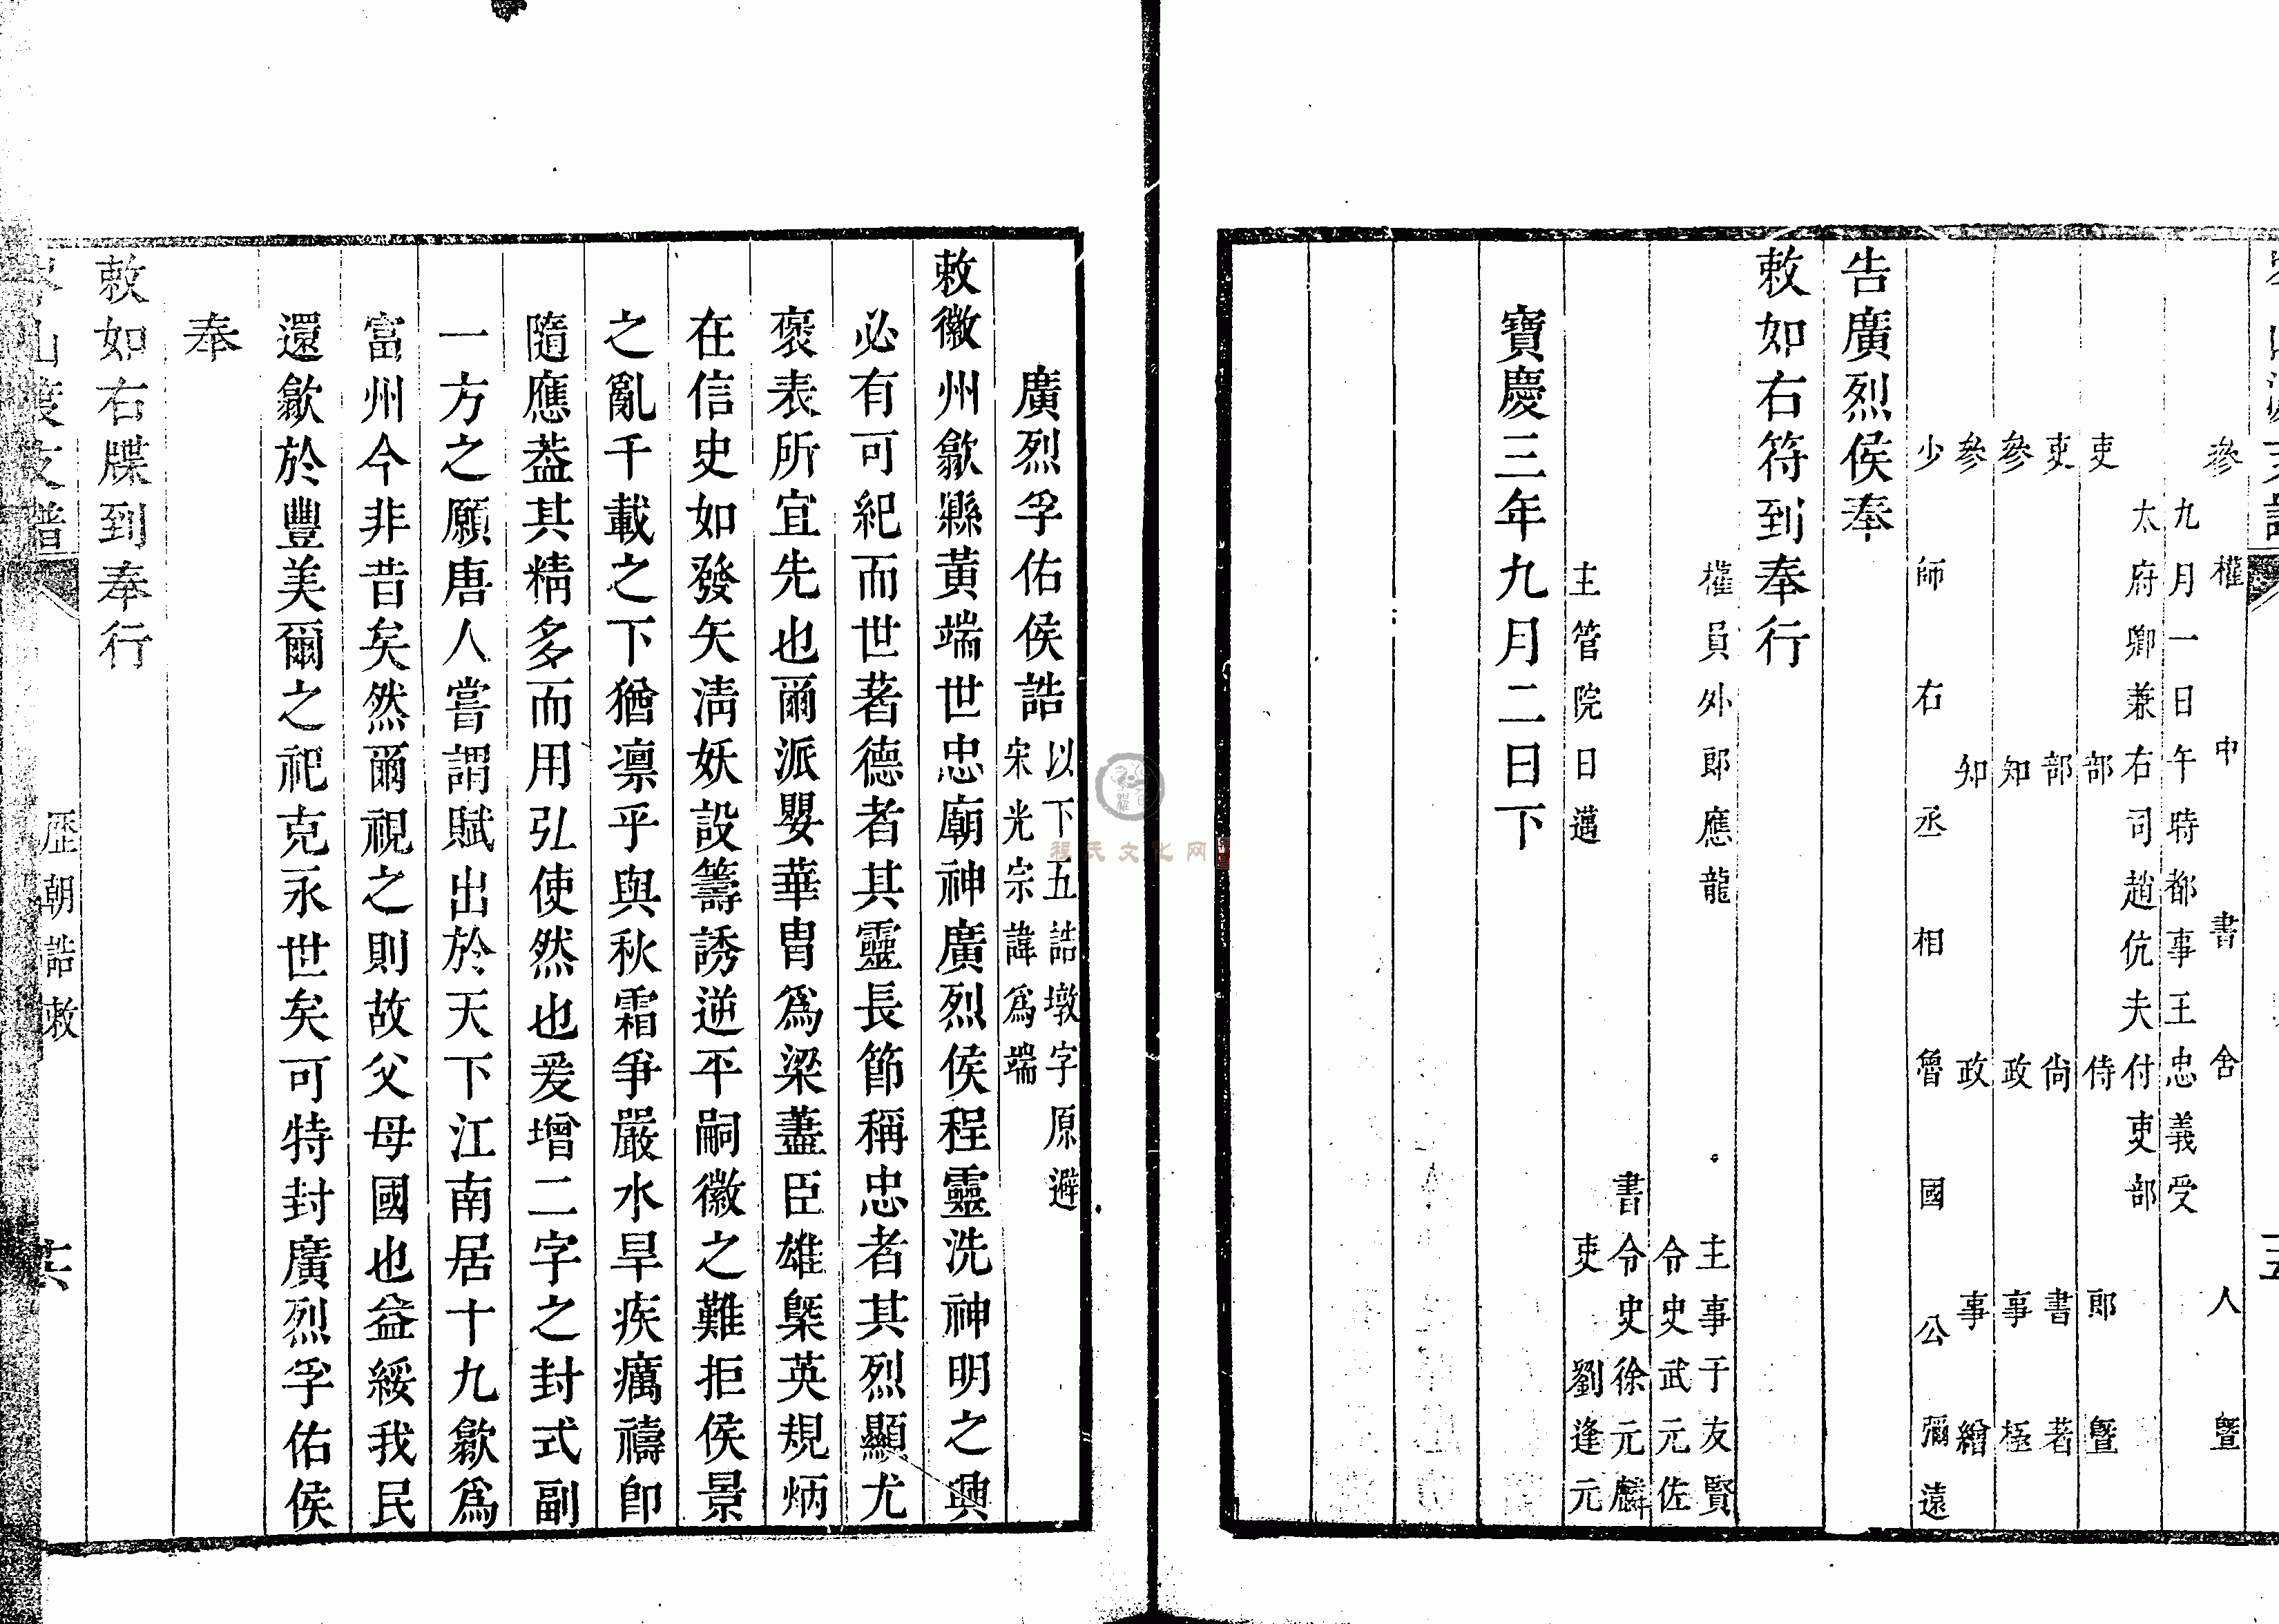 參權中書舍人暨
九月一日午時都事王忠義受
太府卿兼右司趙伉夫付吏部
吏部侍郎暨
吏部尚書著
參知政事極
參知政事繒
少師右丞相魯國公彌遠
告廣烈侯奉
敕如右符到奉行
主事于友賢
權員外郎應龍
令史武元佐
書令史徐元麟
主管院日邁
吏劉逢元
寶慶三年九月二日下
五
廣烈孚佑侯誥
以下五誥墩字原避
宋光宗諱爲端
敕徽州歙縣黃端世忠廟神廣烈侯程靈洗神明之興
必有可紀而世著德者其靈長節稱忠者其烈顯尤
褒表所宜先也爾派嬰華胄爲梁藎臣雄槩英規炳
在信史如發矢淸妖設籌誘逆平嗣徽之難拒侯景
之亂千載之下猶凛乎與秋霜爭嚴水旱疾癘禱卽
隨應葢其精多而用弘使然也爰增二字之封式副
一方之願唐人嘗謂賦出於天下江南居十九歙爲
富州今非昔矣然爾視之則故父母國也益綏我民
還歙於豐美爾之祀克永世矣可特封廣烈孚佑侯
奉
敕如右牒到奉行
歷朝誥敕
六
程氏文化网